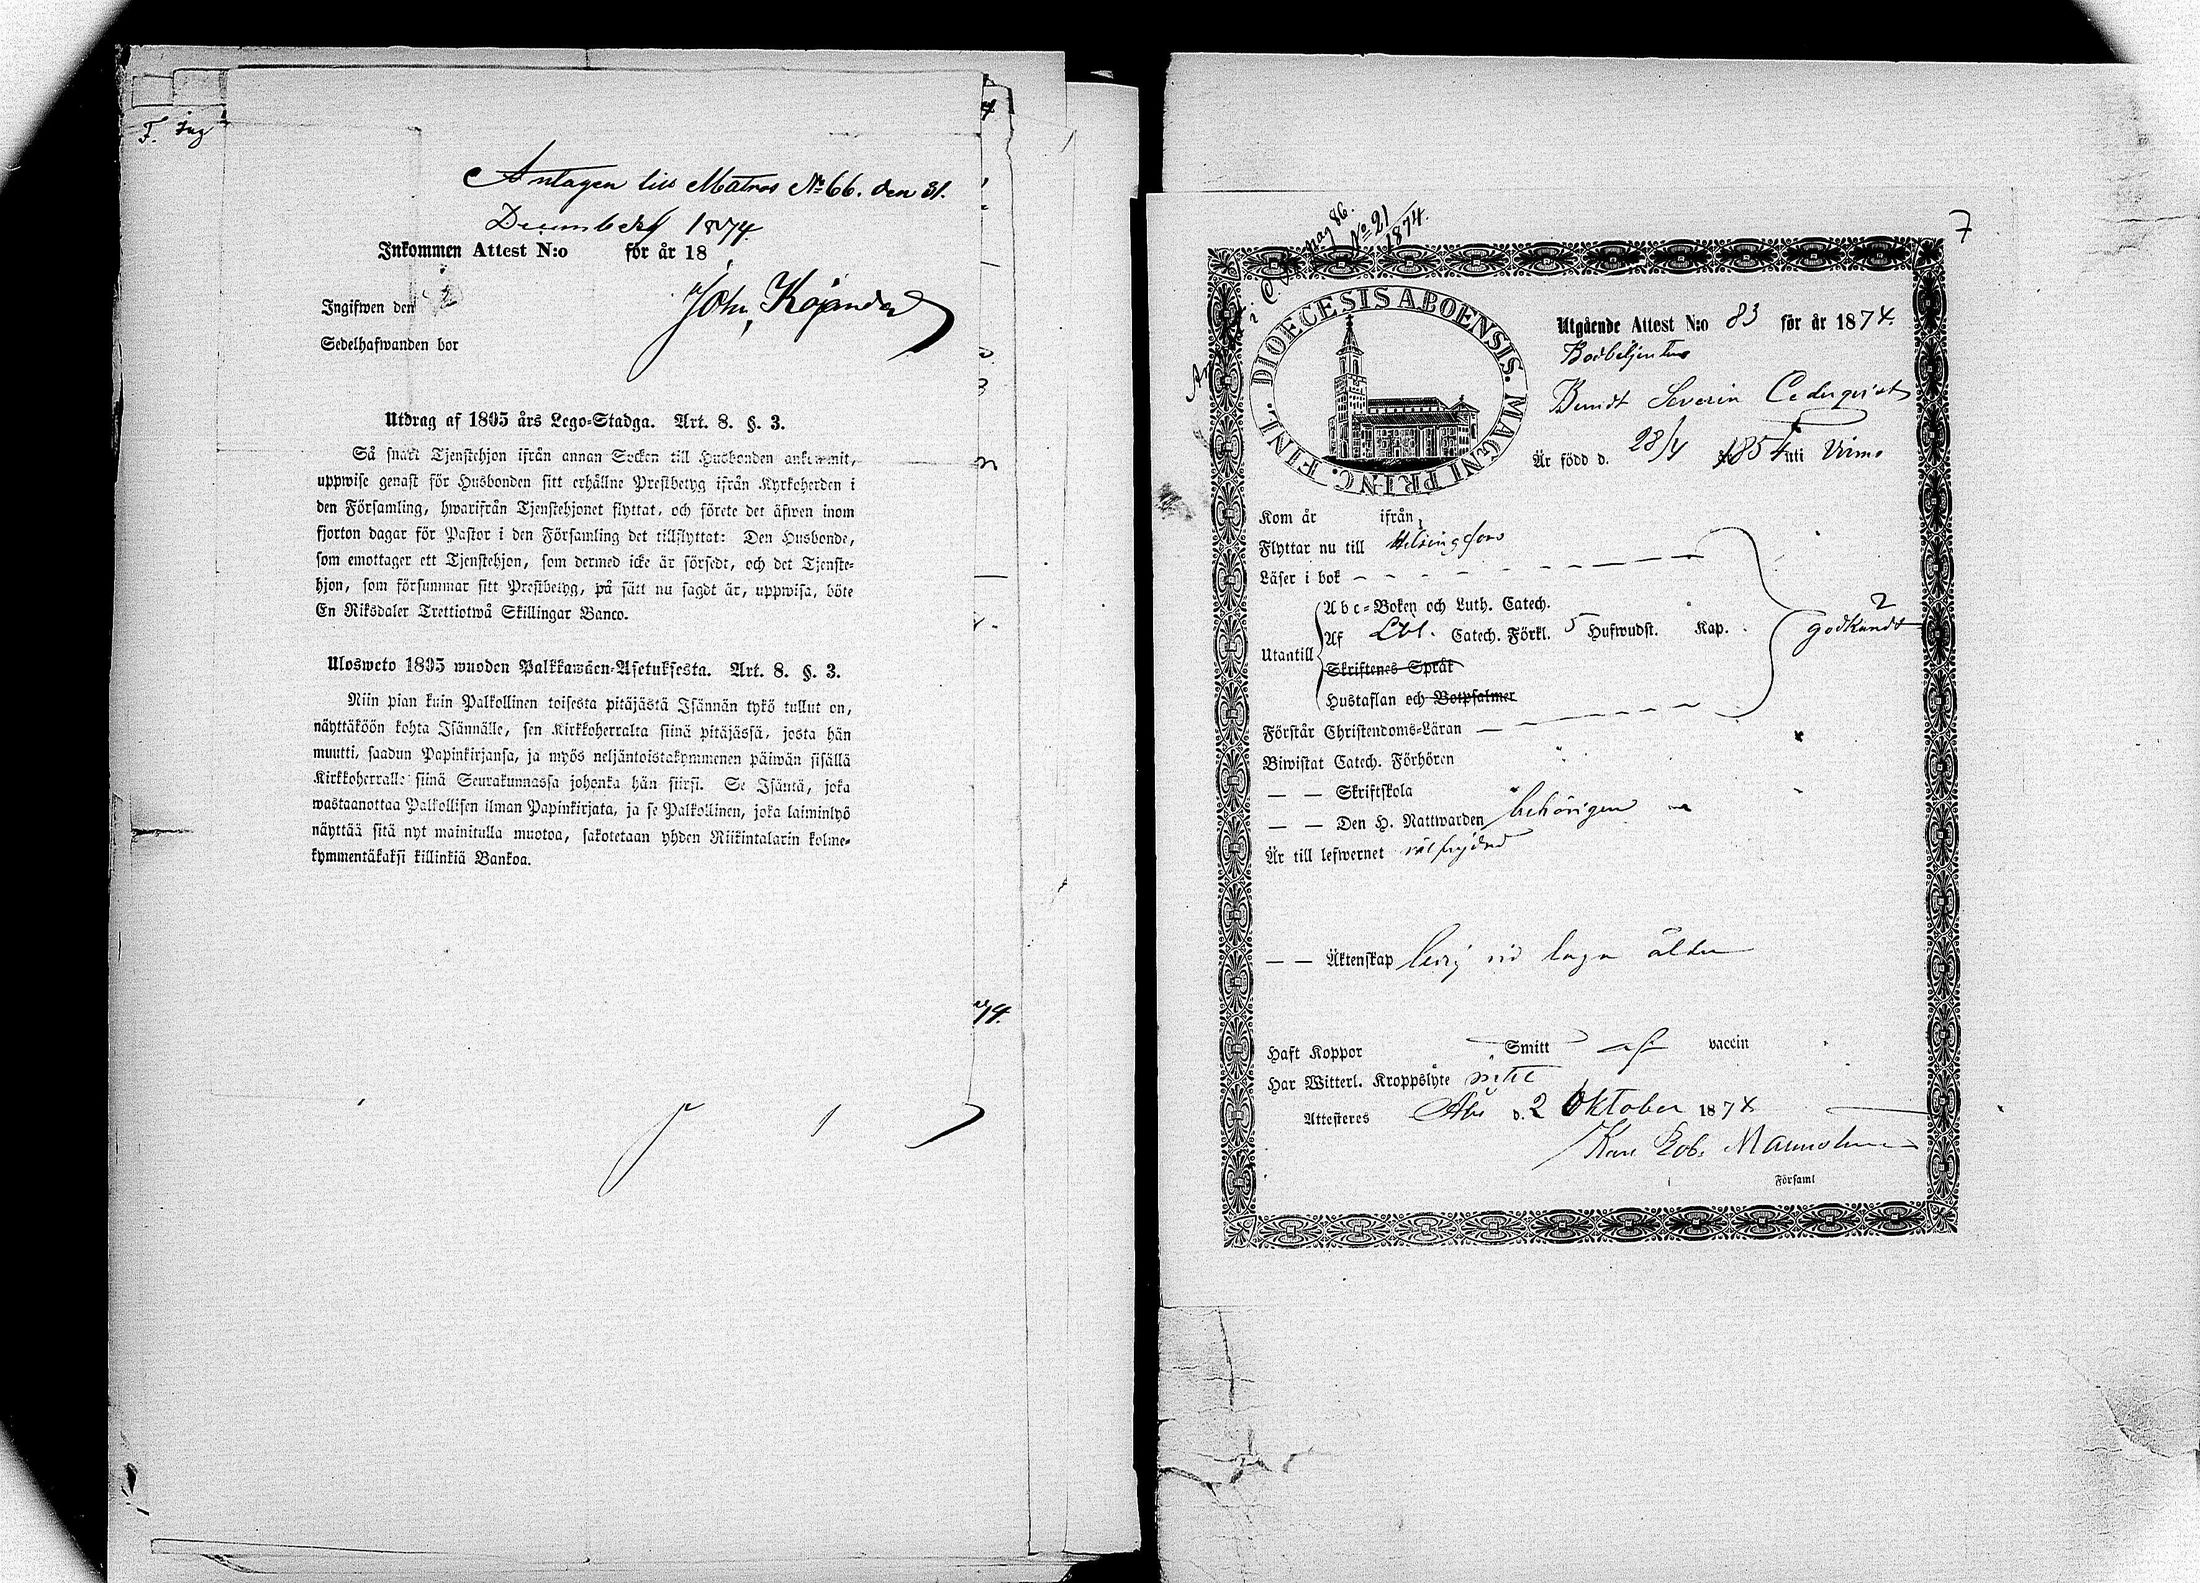 F. Ing
Antagen till Matros No 66. den 31.
December 1874.
Inkommen Attest N:o för år 18
Joh. Kajander
Ingifwen den
Sedelhafwanden bor
Utdrag af 1805 års Lego-Stadga. Art. 8. §. 3.
Så snart Tjenstehjon ifrån annan Socken till Husbonden ankommit,
uppwise genast för Husbonden sitt erhållne Prestbetyg ifrån Kyrkoherden i
den Församling, hwarifrån Tjenstehjonet flyttat, och förete det äfwen inom
fjorton dagar för Pastor i den Församling det tillflyttat: Den Husbonde,
som emottager ett Tjenstehjon, som dermed icke är försedt, och det Tjenste-
hjon, som försummar sitt Prestbetyg, på sätt nu sagdt är, uppwisa, böte
En Riksdaler Trettiotwå Skillingar Banco.
Ulosweto 1805 wuoden Palkkawäen-Asetuksesta. Art. 8. §. 3.
Niin pian kuin Palkollinen toisesta pitäjästä Isännän tykö tullut on,
näyttäköön kohta Isännälle, sen Kirkkoherralta siinä pitäjässä, josta hän
muutti, saadun Papinkirjansa, ja myös neljäntoistakymmenen päiwän sisällä
Kirkkoherralle siinä Seurakunnassa johonka hän siirsi. Se Isäntä, joka
wastaanottaa Palkollisen ilman Papinkirjata, ja se Palkollinen, joka laiminlyö
näyttää sitä nyt mainitulla muotoa, sakotetaan yhden Riikintalarin kolme-
kymmentäkaksi killinkiä Bankoa.
74.
7
i C. pag 86.
No 21
1874.
DIOECESIS ABOENSIS. MAGNI PRINC. FINL.
Utgående Attest N:o 83 för år 1874.
Bodbetjenten
Berndt Severin Cederqvist
Är född d. 28/4 1854 uti Virmo
Kom år ifrån
Flyttar nu till Helsingfors
Läser i bok
Abc-Boken och Luth. Catech.
Utantill Af Lbl. Catech. Förkl. 5 Hufwudst. Kap. godkändt
Skriftenes Språk
Hustaflan och Botpsalmer
Förstår Christendoms-Läran
Biwistat Catech. Förhören
— — Skriftskola
— — Den H. Nattwarden behörigen
Är till lefwernet välfrejdad
— — Äktenskap ledig vid laga ålder
Haft Koppor Smitt af vaccin
Har Witterl. Kroppslyte intet
Attesteras Åbo d. 2 Oktober 1874
Karl Rob. Malmström
Församl